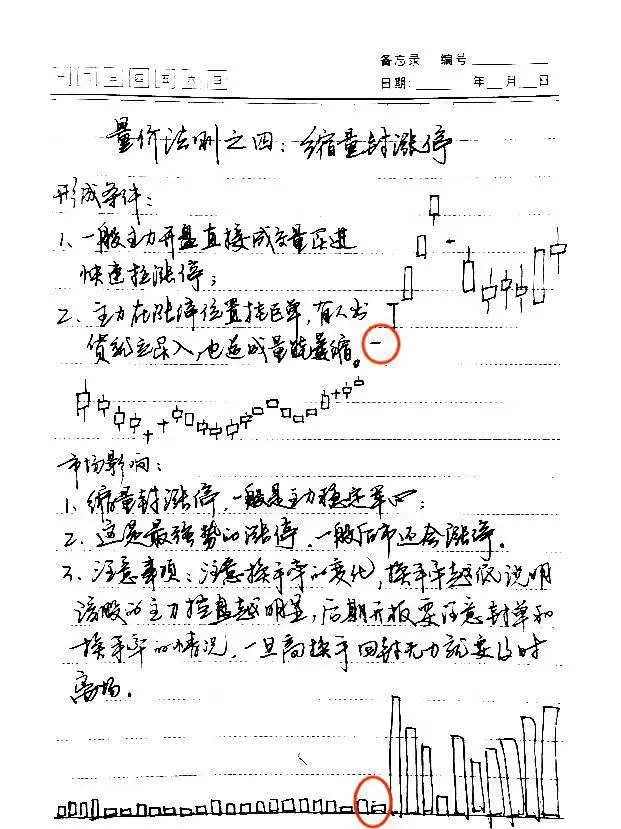 备忘录 编号
一 二 三 四 五 六 日
日期: 年 月 日
量价法则之四:缩量封涨停
形成条件:
1、一般主力开盘直接成交量跟进
快速拉涨停;
2、主力在涨停位置挂巨单,有人出
货就立买入,也造成量能萎缩。
市场影响:
1、缩量封涨停,一般是主力稳定军心;
2、这是最强势的涨停,一般后市还会涨停。
3、注意事项:注意换手率的变化,换手率越低说明
该股的主力控盘越明显,后期开板要注意封单和
换手率的情况,一旦高换手回封无力就要及时
离场。